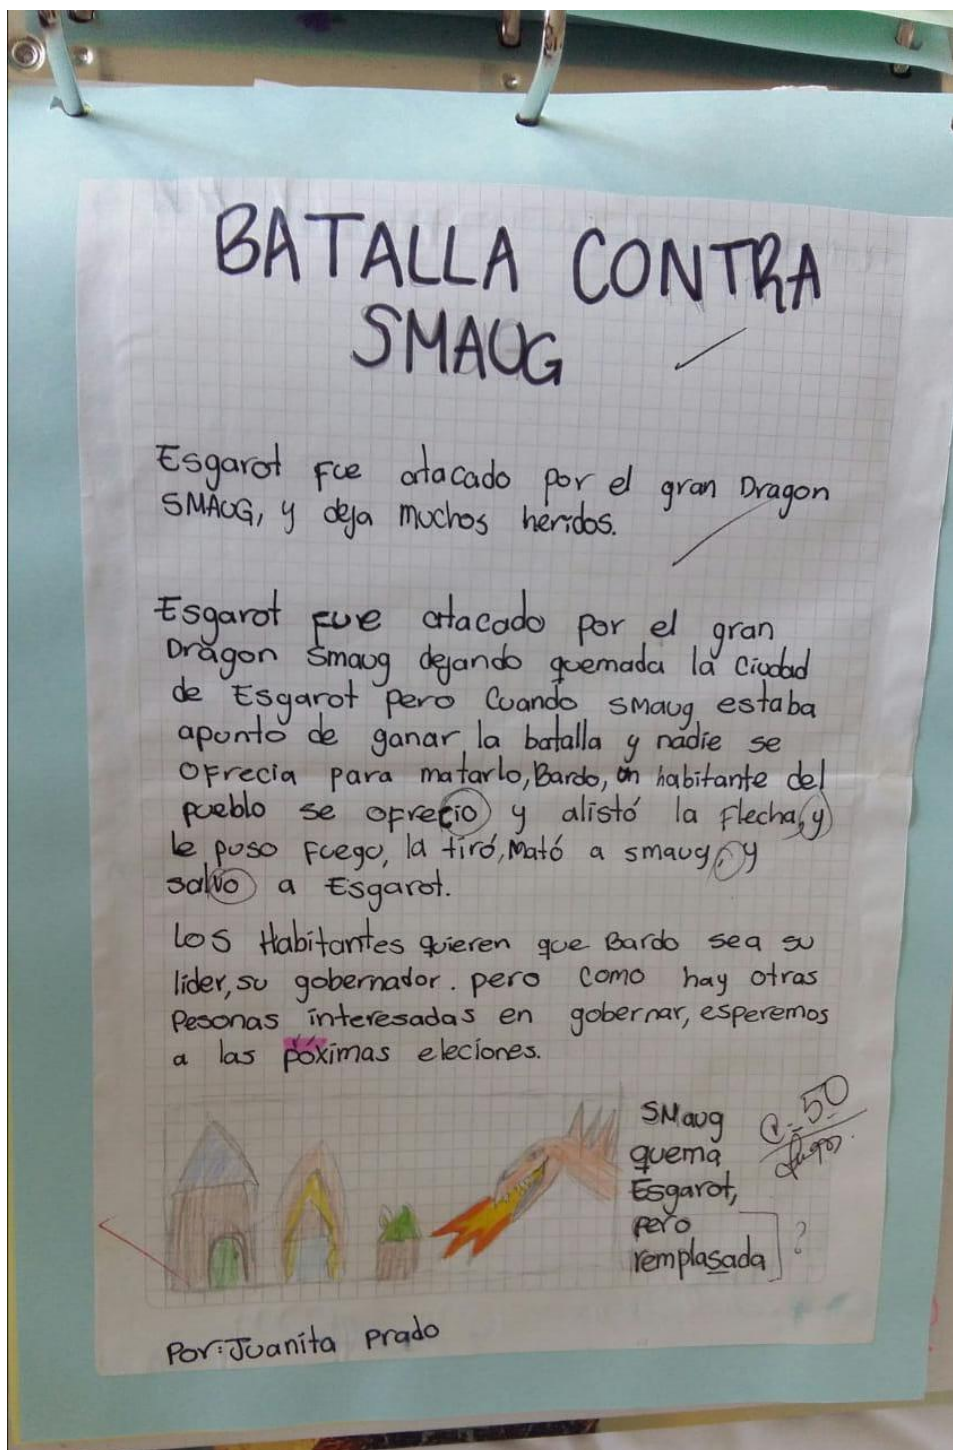 BATALLA CONTRA
SMAUG
Esgarot fue atacado por el gran Dragon
SMAUG, y deja muchos heridos.
Esgarot fue atacado por el gran
Dragon Smaug dejando quemada la Ciudad
de Esgarot pero Cuando smaug estaba
apunto de ganar la batalla y nadie se
ofrecia para matarlo, Bardo, un habitante del
pueblo se ofrecio y alistó la flecha, y
le puso fuego, la tiró, Mató a smaug, y
salvo a Esgarot.
Los Habitantes quieren que Bardo sea su
lider, su gobernador. pero como hay otras
Pesonas interesadas en gobernar, esperemos
a las póximas eleciones.
SMaug
quema
Esgarot,
pero
remplasada
?
50
Por: Juanita Prado